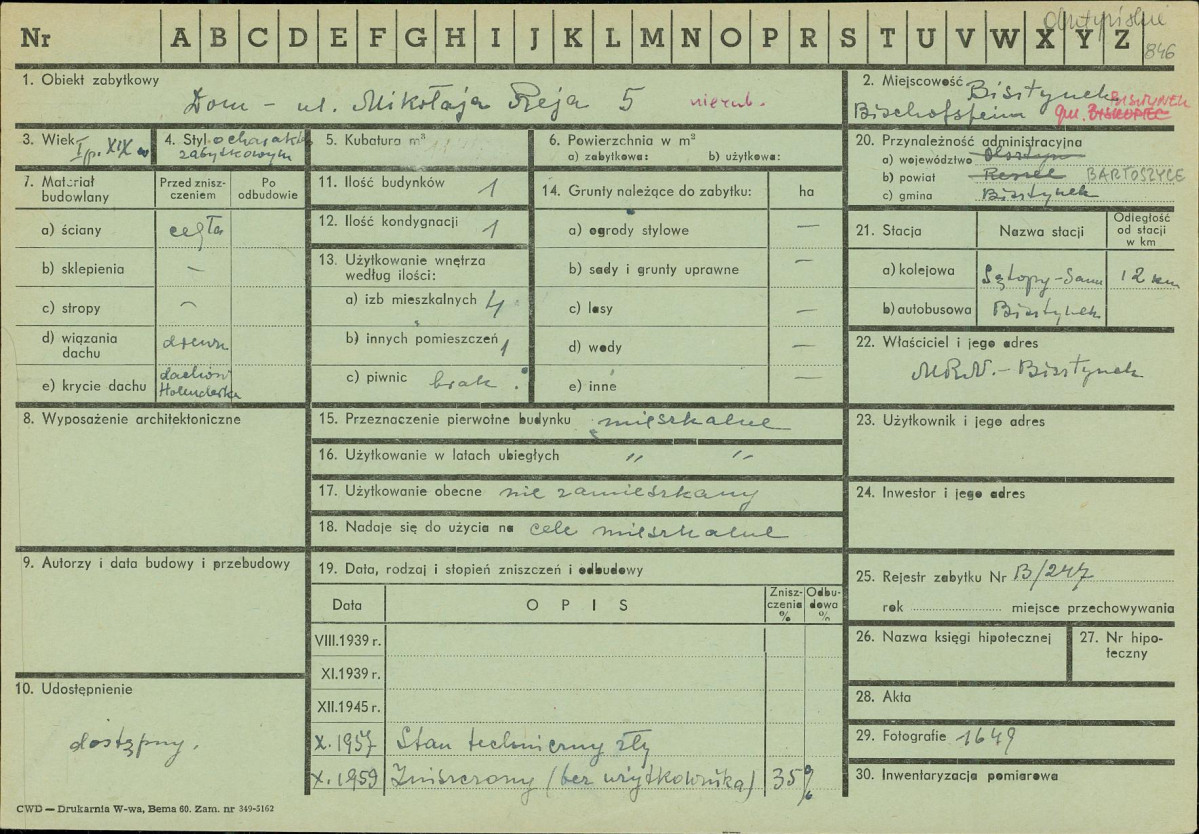 Nr A B C D E F G H I J K L M N O P R S T U V W X Y Z
846
1. Obiekt zabytkowy
Dom – ul. Mikołaja Reja 5 nieruch.
2. Miejscowość Bisztynek
Bischofsteina gm. BISKUPIEC BISZTYNEK
3. Wiek I p. XIX w
4. Styl o charakt.
zabytkowym
5. Kubatura m³
6. Powierzchnia w m²
a) zabytkowa: b) użytkowa:
20. Przynależność administracyjna
a) województwo Olsztyn
b) powiat Reszel BARTOSZYCE
c) gmina Bisztynek
7. Materiał budowlany
Przed zniszczeniem
Po odbudowie
a) ściany cegła
b) sklepienia —
c) stropy —
d) wiązania dachu drewn
e) krycie dachu dachów
Holenderka
11. Ilość budynków 1
12. Ilość kondygnacji 1
13. Użytkowanie wnętrza
według ilości:
a) izb mieszkalnych 4
b) innych pomieszczeń 1
c) piwnic brak
14. Grunty należące do zabytku: ha
a) ogrody stylowe —
b) sady i grunty uprawne —
c) lasy —
d) wody —
e) inne —
21. Stacja Nazwa stacji Odległość od stacji w km
a) kolejowa Sątopy-Sam 12 km
b) autobusowa Bisztynek
22. Właściciel i jego adres
M.R.N. – Bisztynek
8. Wyposażenie architektoniczne
15. Przeznaczenie pierwotne budynku mieszkalne
16. Użytkowanie w latach ubiegłych " "
17. Użytkowanie obecne nie zamieszkany
18. Nadaje się do użycia na cele mieszkalne
23. Użytkownik i jego adres
24. Inwestor i jego adres
9. Autorzy i data budowy i przebudowy
19. Data, rodzaj i stopień zniszczeń i odbudowy
Data OPIS Zniszczenia % Odbudowa %
VIII.1939 r.
XI.1939 r.
XII.1945 r.
X. 1957 Stan techniczny zły
X. 1959 Zniszczony (bez użytkownika) 35%
25. Rejestr zabytku Nr B/247
rok miejsce przechowywania
26. Nazwa księgi hipotecznej
27. Nr hipoteczny
10. Udostępnienie
dostępny.
28. Akta
29. Fotografie 1649
30. Inwentaryzacja pomiarowa
CWD — Drukarnia W-wa, Bema 60. Zam. nr 349-5162